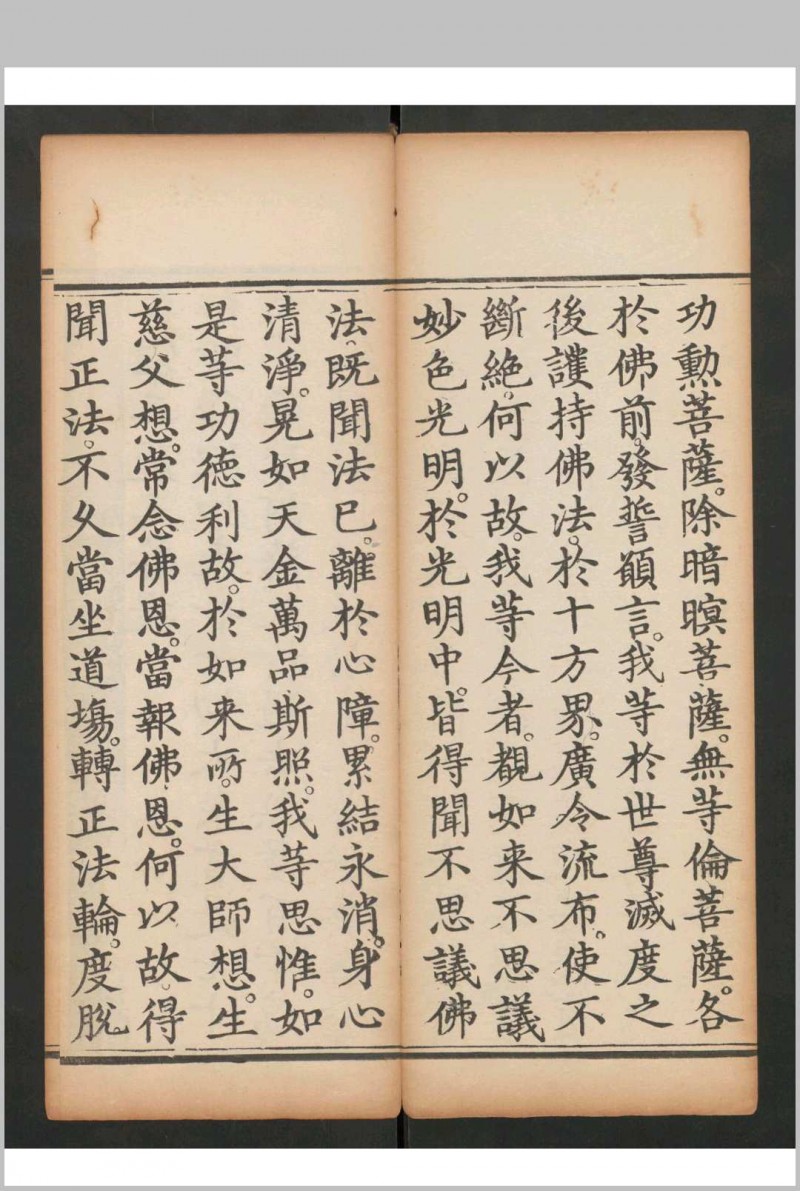 功勲菩薩。除暗暝菩薩。無等倫菩薩。各
於佛前。發誓願言。我等於世尊滅度之
後。護持佛法。於十方界。廣令流布。使不
斷絶。何以故。我等今者。覩如来不思議
妙色光明。於光明中。皆得聞不思議佛
法。既聞法已。離於心障。累結永消。身心
清淨。晃如天金。萬品斯照。我等思惟。如
是等功德利故。於如来所。生大師想。生
慈父想。常念佛恩。當報佛恩。何以故。得
聞正法。不久當坐道塲。轉正法輪。度脫